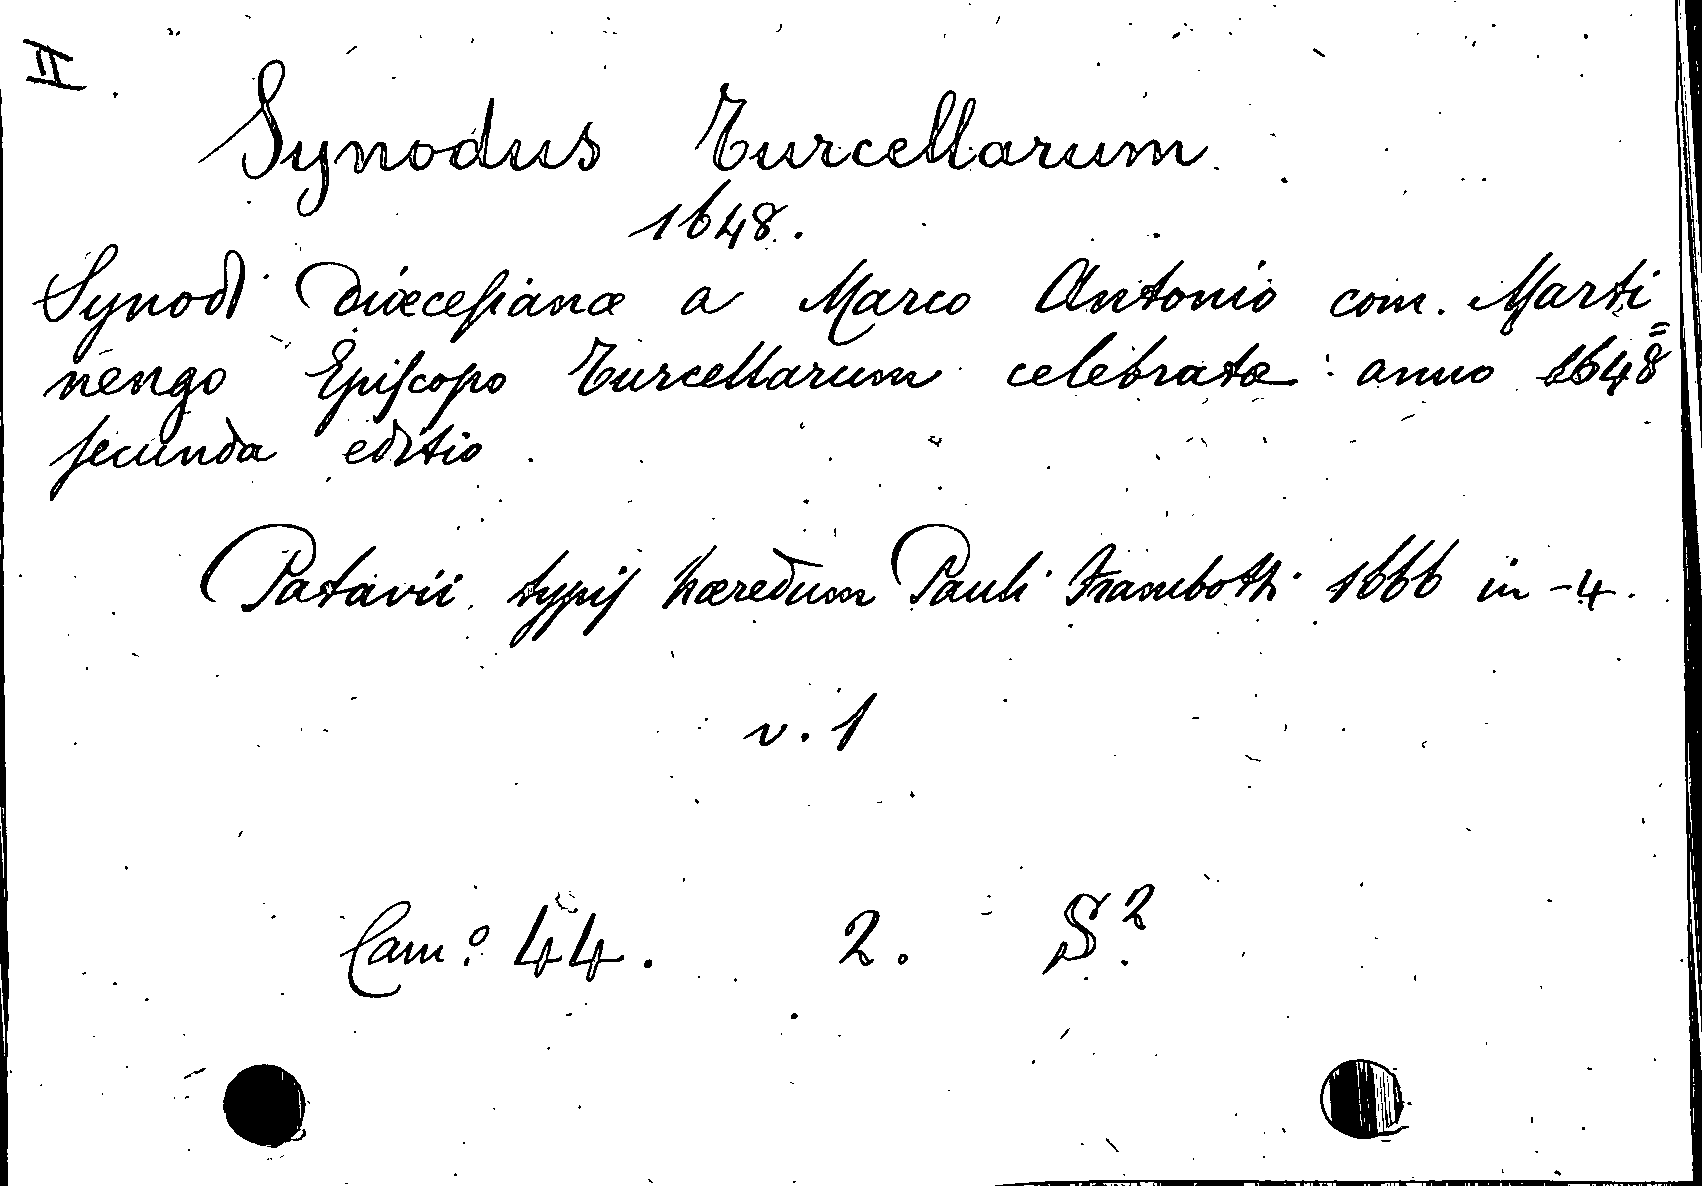 II
Synodus Turcellarum
1648.
Synodi Diœceſianæ a Marco Antonio com. Marti=
nengo Epiſcopo Turcellarum celebratæ anno 1648
ſecunda editio
Patavii typiſ hæredum Pauli Frambotti 1666 in-4.
v. 1
Cam.º 44. 2. S².